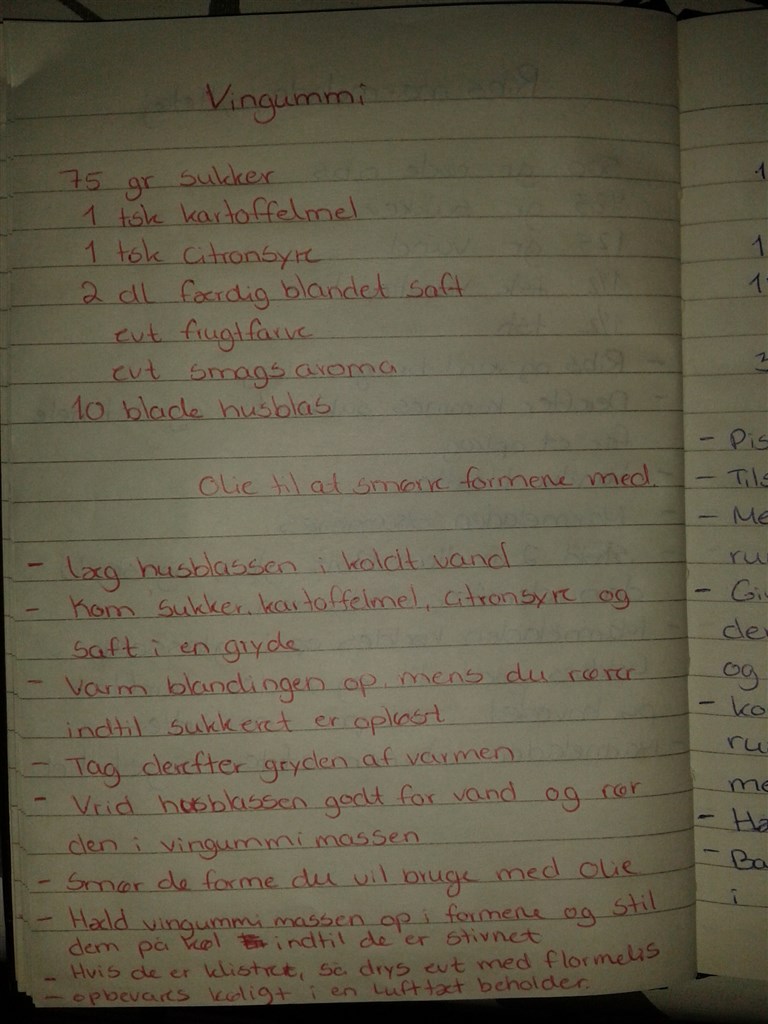 Vingummi
75 gr sukker
1 tsk kartoffelmel
1 tsk citronsyre
2 dl færdig blandet saft
evt frugtfarve
evt smags aroma
10 blade husblas
Olie til at smøre formene med.
- læg husblassen i koldt vand
- Kom sukker, kartoffelmel, citronsyre og
saft i en gryde
- Varm blandingen op, mens du rører
indtil sukkeret er opløst
- Tag derefter gryden af varmen
- Vrid husblassen godt for vand og rør
den i vingummi massen
- Smør de forme du vil bruge med olie
- Hæld vingummi massen op i formene og stil
dem på køl indtil de er stivnet
- Hvis de er klistret, så drys evt med flormelis
- opbevares køligt i en lufttæt beholder.
1
1
1
3
- Pis
- Tils
- Me
ru
- Gi
de
og
- ko
ru
me
- Hæ
- Ba
i